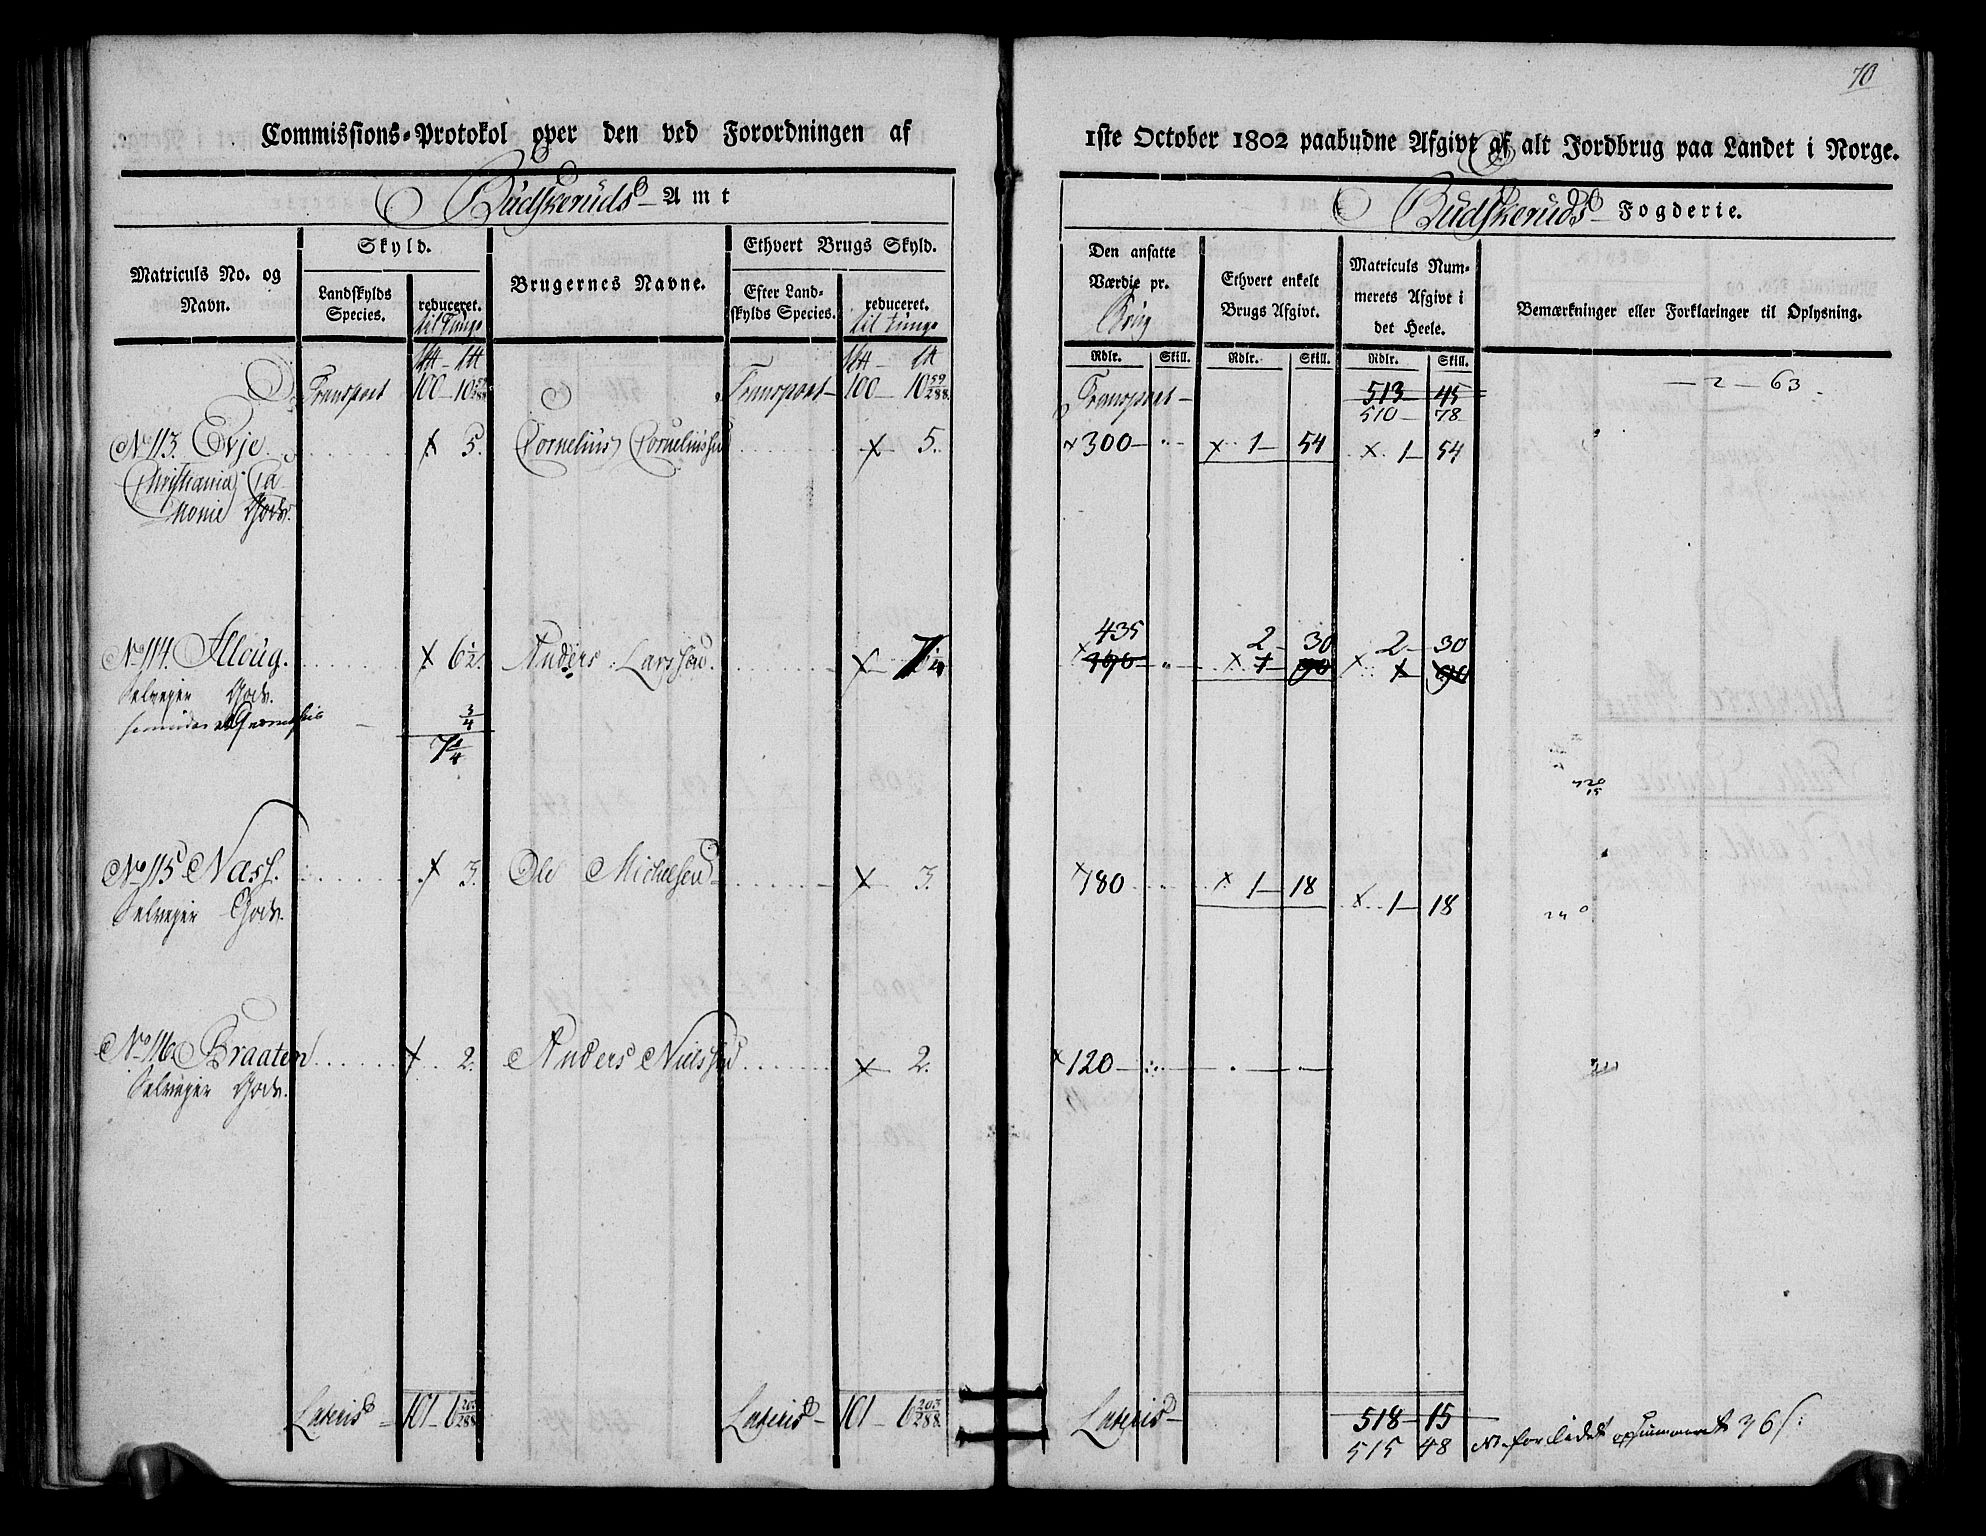 70
Commissions-Protokol over den ved Forordningen af
1ste October 1802 paabudne Afgivt af alt Jordbrug paa Landet i Norge.
Budskeruds Amt
Budskeruds Fogderie.
Matriculs No. og Navn.
Skyld.
Landskylds Species.
reduceret.
til Tunge
Brugernes Navne.
Ethvert Brugs Skyld.
Efter Landskylds Species.
reduceret.
til Tunge
Den ansatte Værdie pr. Brug
Ethvert enkelt Brugs Afgivt.
Matriculs Nummerets Afgivt i det Heele.
Bemærkninger eller Forklaringer til Oplysning.
Rdlr. Skill. Rdlr. Skill. Rdlr. Skill.
Transport 100 – 10 59/288 Transport – 100 – 10 59/288 Transport – 513 45 – 2 – 63
510 – 78
No 113. Evje 5. Cornelius Corneliussen 5. 300 – 1 – 54 1 – 54
Christiania
Gods.
No 114. 6 1/2. Anders Larssen 7 1/4 435 2 – 30 2 – 30
190 – 1 – 90 1 – 90
Selveyer Gods.
3/4
7 1/4
720
15
No 115 Næss. 3. Ole Michelsen 3. 180 1 – 18 1 – 18
Selveyer Gods. 240
No 116 Braaten 2. Anders Nielssen 2. 120
Selveyer Gods.
Lateris 101 – 6 203/288 Lateris – 101 – 6 203/288 Lateris – 518 – 15
515 48 for lidet opsummeret 36 s: